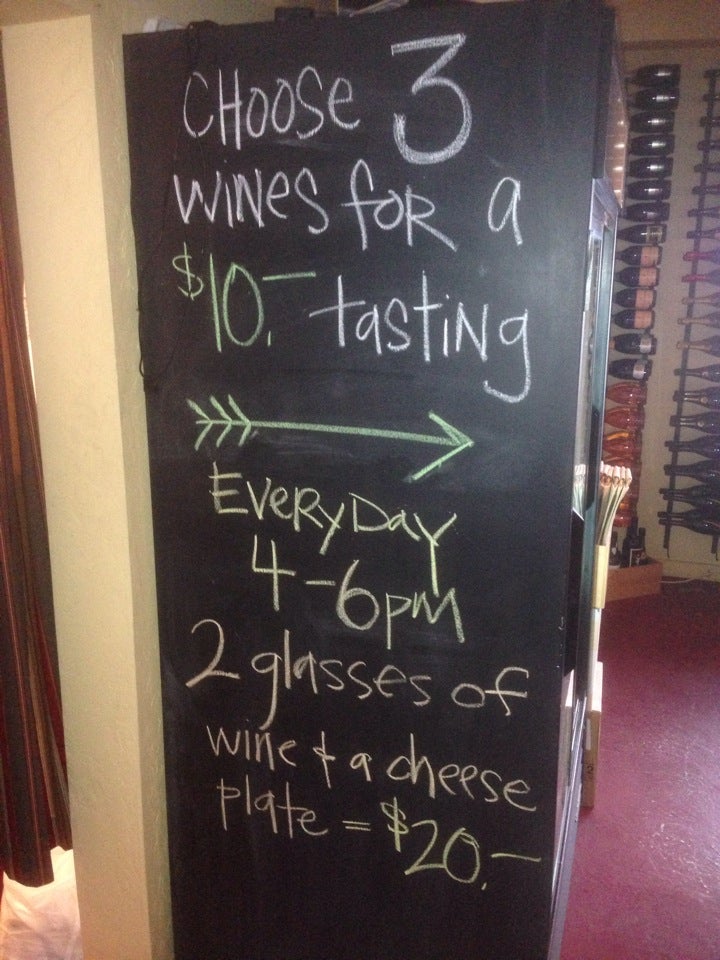 CHOOSE 3
WINES FOR a
$10.- tasting
EVERYDay
4-6pm
2 glasses of
wine & a cheese
plate = $20.-